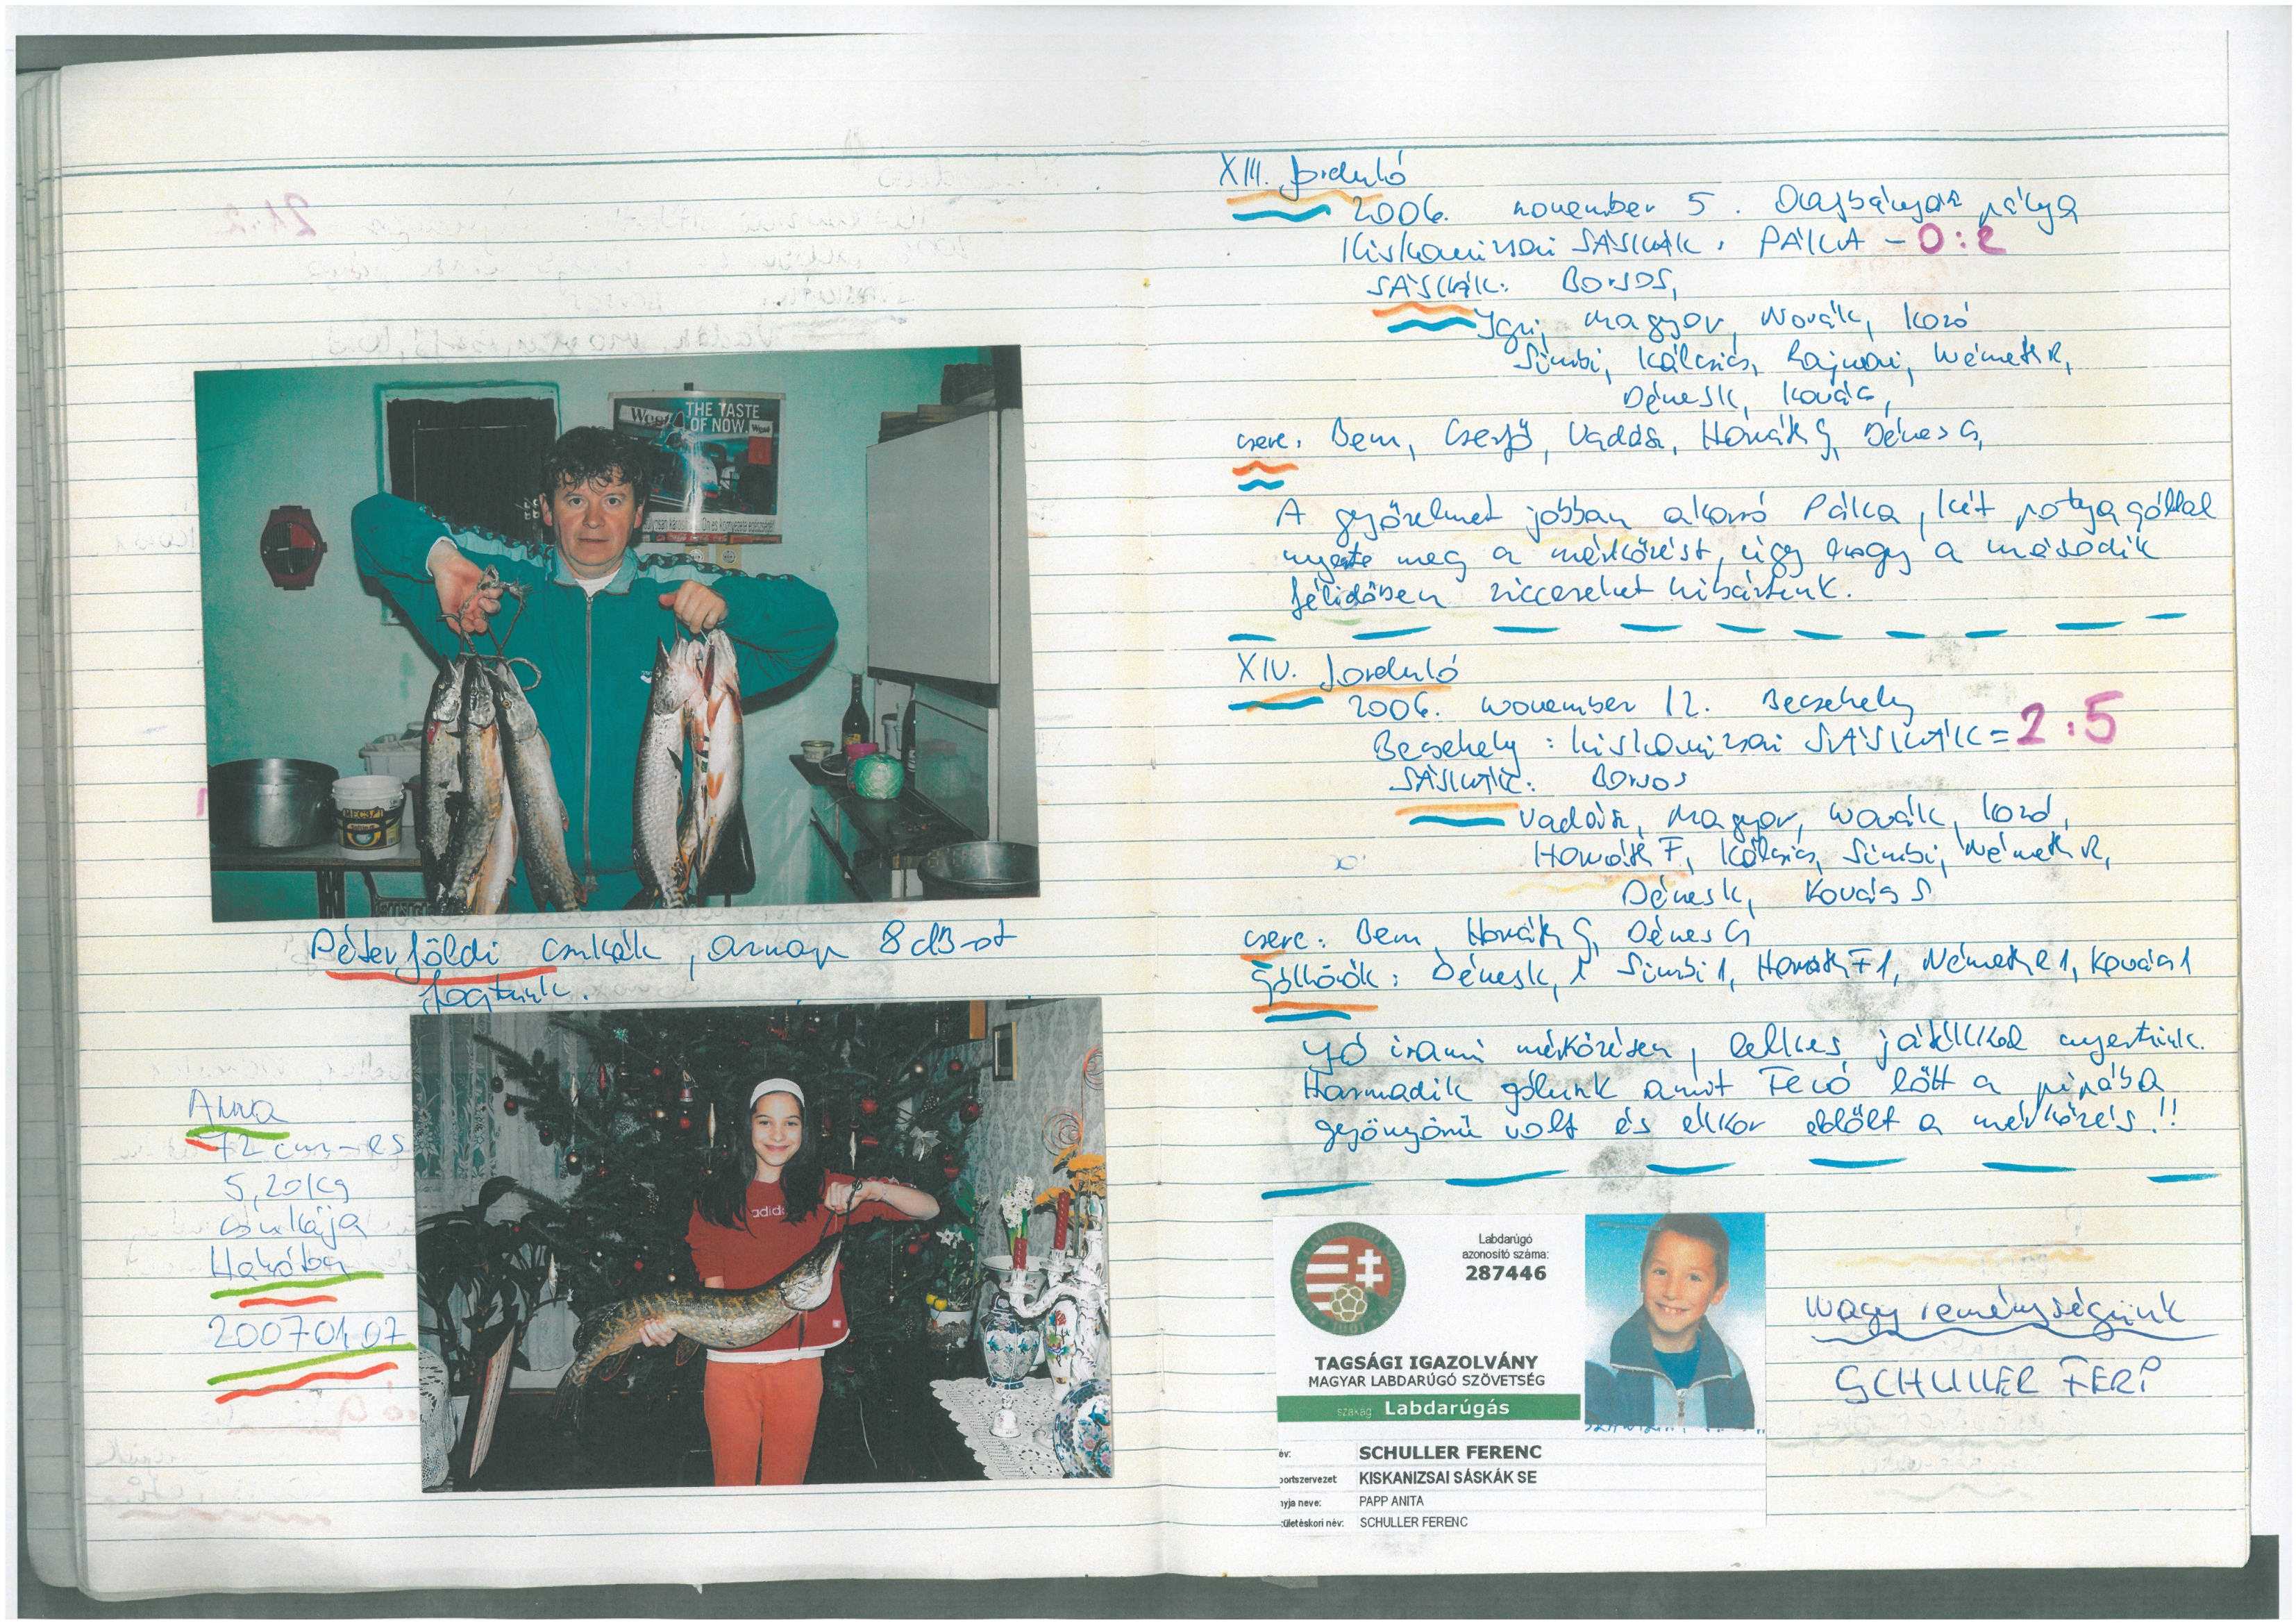 THE TASTE
West OF NOW. West
Péterföldi csukák, aznap 8 dB-ot
fogtunk.
Anna
72 cm-es
5,20 kg
csukája
adidas
2007 01, 07
XIII. forduló
2006. november 5. Olajbányász pálya
Kiskanizsai SÁSKÁK : PÁKA - 0:2
SÁSKÁK: BORSOS,
Igri, Magyar, Novák, Kozó
Simbi, Kálcsics, Rajnai, Németh R,
Dénes K, Kovács,
csere: Bem, Cserjő, Vadász, Horváth G, Dénes G,
A győzelmet jobban akaró Páka, két potya góllal
nyerte meg a mérkőzést, úgy hogy a második
félidőben ziccereket hibáztunk.
XIV. forduló
2006. november 12. Becsehely
Becsehely : Kiskanizsai SÁSKÁK = 2:5
SÁSKÁK: Borsos
Vadász, Magyar, Novák, Kozó,
Horváth F, Kálcsics, Simbi, Németh R,
Dénes K, Kovács S
csere: Bem, Horváth G, Dénes G
Góllövők: Dénes K, 1 Simbi 1, Horváth F 1, Németh R 1, Kovács 1
Jó iramú mérkőzésen, lelkes játékkal nyertünk.
Harmadik gólunk amit Fecó lőtt a pipába
gyönyörű volt és ekkor eldőlt a mérkőzés!!
Labdarúgó
azonosító száma:
287446
TAGSÁGI IGAZOLVÁNY
MAGYAR LABDARÚGÓ SZÖVETSÉG
szakág Labdarúgás
Nagy reménységünk
SCHULLER FERI
év: SCHULLER FERENC
portszervezet KISKANIZSAI SÁSKÁK SE
nyja neve: PAPP ANITA
ületéskori név: SCHULLER FERENC